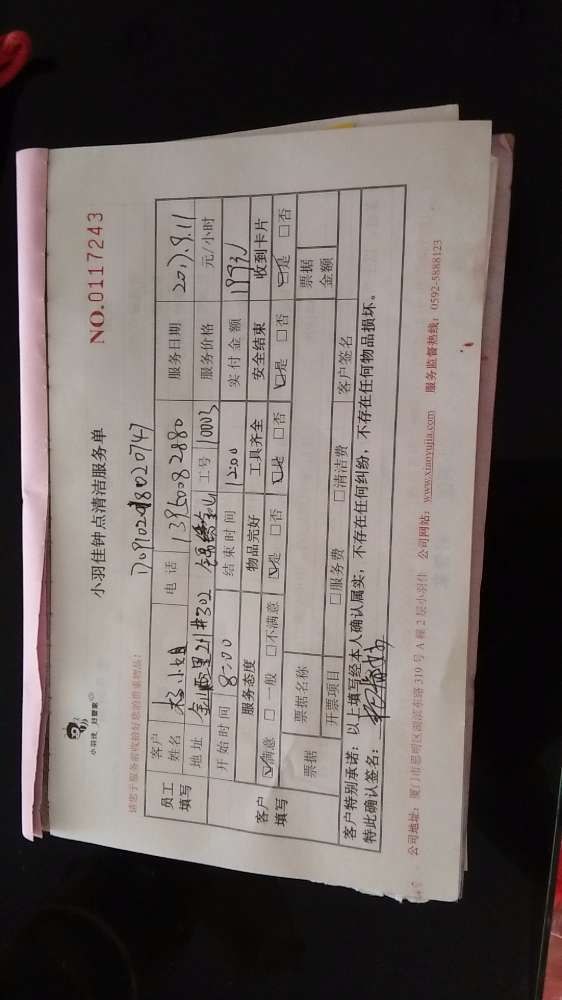 小羽佳 好管家
小羽佳钟点清洁服务单
NO.0117243
请您于服务前收拾好您的贵重物品!
员工填写
客户姓名 小姐 电话 13950082880 服务日期 2017.9.11
地址 工号 10003 服务价格 元/小时
开始时间 8:00 结束时间 1200 实付金额
客户填写
服务态度 物品完好 工具齐全 安全结束 收到卡片
☑满意 □一般 □不满意 ☑是 □否 ☑是 □否 ☑是 □否 ☑是 □否
票据 票据名称 票据金额
开票项目 □服务费 □清洁费 客户签名
客户特别承诺:以上填写经本人确认属实,不存在任何纠纷,不存在任何物品损坏。
特此确认签名:
公司地址:厦门市思明区湖滨东路319号A幢2层小羽佳 公司网站:www.xiaoyujia.com 服务监督热线:0592-5888123